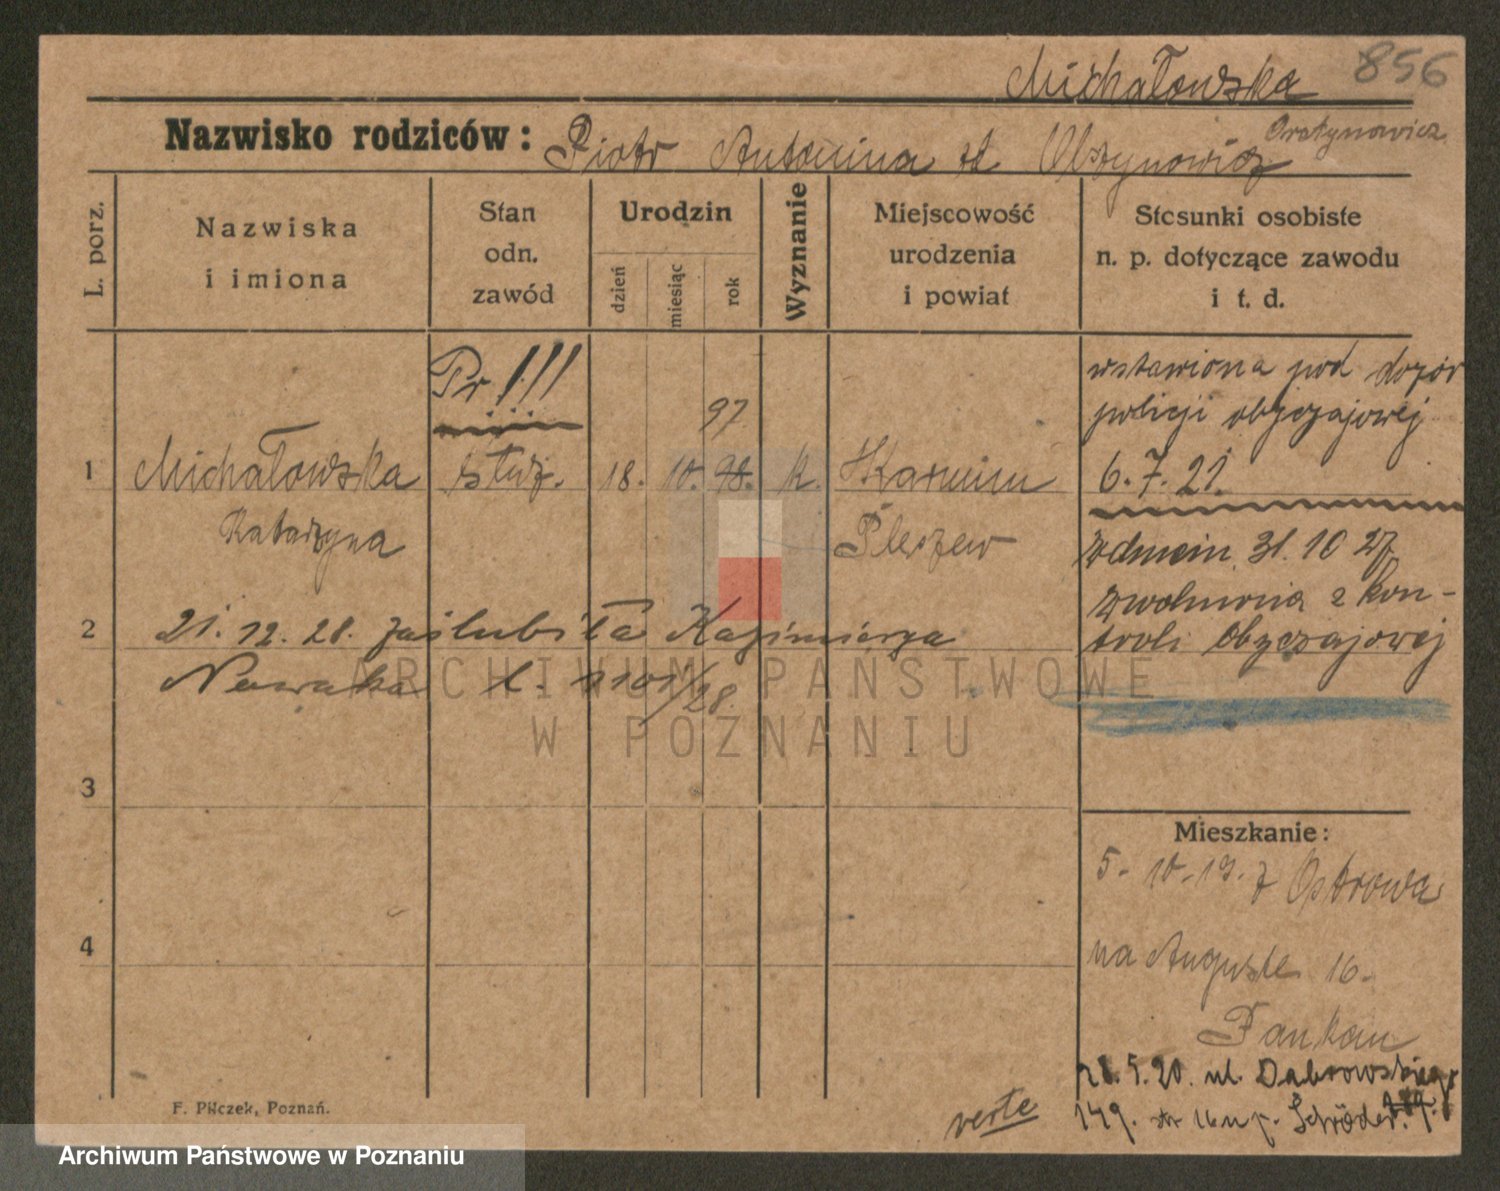 Michałowska 856
Nazwisko rodziców: Piotr Antonina Olszynowicz
L. porz.
Nazwiska
i imiona
Stan
odn.
zawód
Urodzin
dzień
miesiąc
rok
Wyznanie
Miejscowość
urodzenia
i powiat
Stosunki osobiste
n. p. dotyczące zawodu
i t. d.
Pr III
97
1 Michałowska służ. 18. 10. 98. k. Karmin
Katarzyna Pleszew
wstawiona pod dozór
policji obyczajowej
6.7.21.
31. 10 27
zwolniona z kon-
troli obyczajowej
2 21. 12. 28. zaślubiła Kazimierza
Nowaka l. 1101/28.
3
4
Mieszkanie:
5. 10. 19. z Ostrowa
na Auguste 16.
Pankau
28.5.20. ul. Dąbrowskiego
149. Schröder.
verte
F. Pilczek, Poznań.
ARCHIWUM PAŃSTWOWE
W POZNANIU
Archiwum Państwowe w Poznaniu